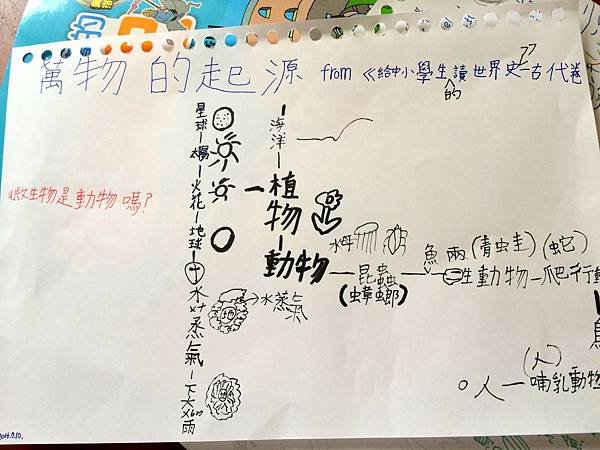 萬物的起源 from 《給中小學生讀的世界史-古代卷
星球-太陽-火花-地球-水蒸氣-下大雨
海洋-植物-動物-昆蟲
(蟑螂)
水母
魚
(蛇)
動物-爬行動
水蒸氣
微生物是動物嗎?
(人)
人-哺乳動物